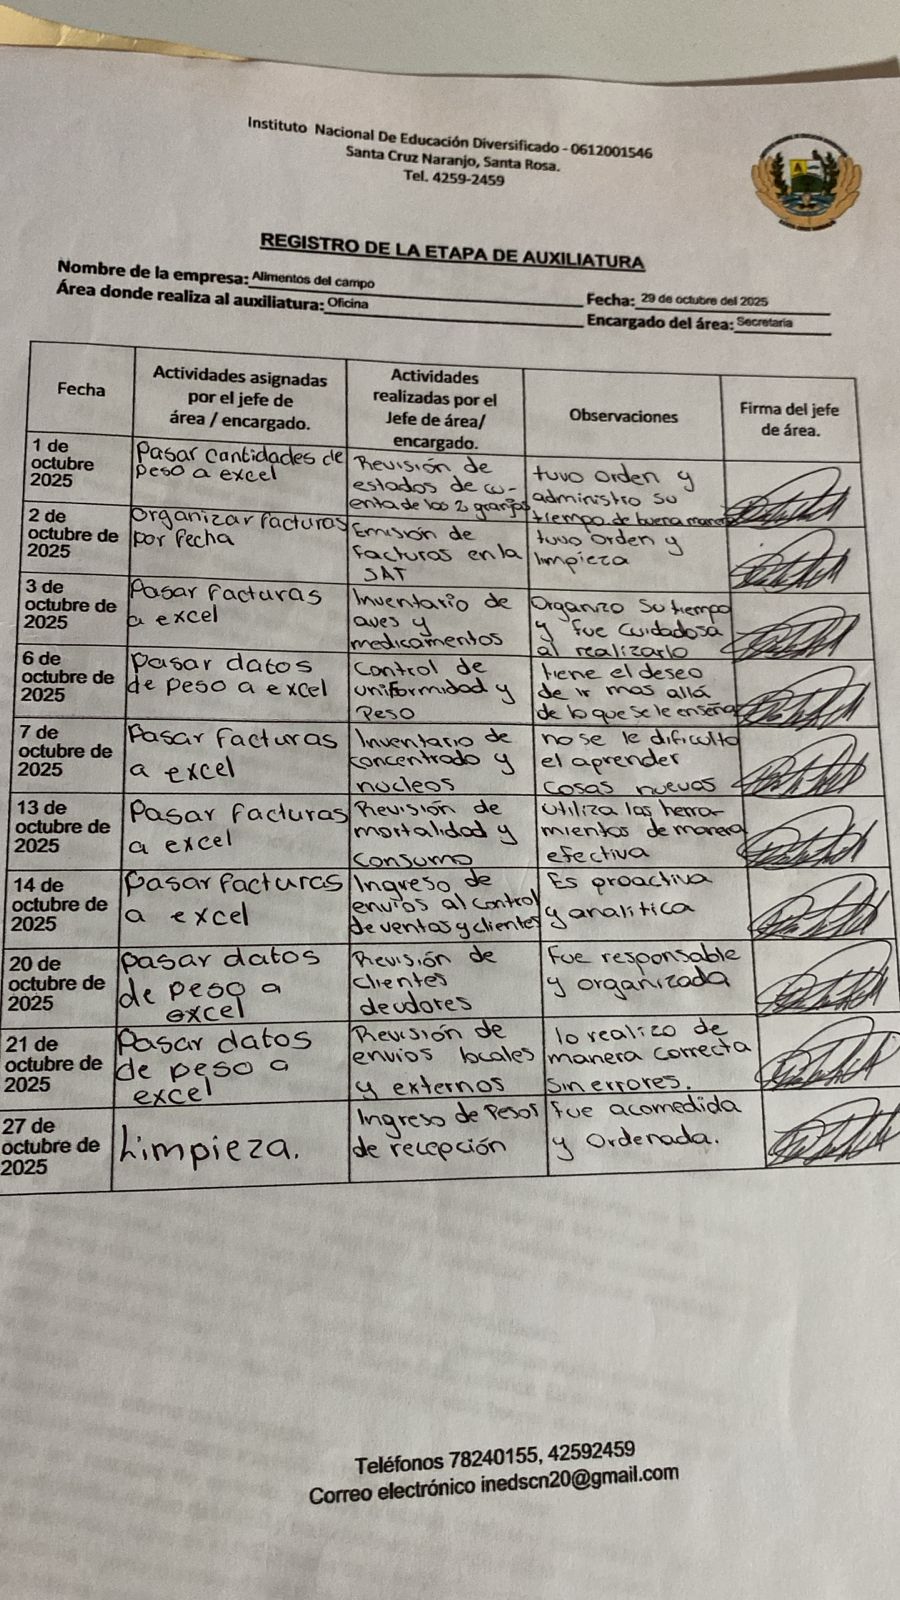 Instituto Nacional De Educación Diversificado - 0612001546
Santa Cruz Naranjo, Santa Rosa.
Tel. 4259-2459
REGISTRO DE LA ETAPA DE AUXILIATURA
Nombre de la empresa: Alimentos del campo
Fecha: 29 de octubre del 2025
Área donde realiza al auxiliatura: Oficina
Encargado del área: Secretaria
Fecha
Actividades asignadas
por el jefe de
área / encargado.
Actividades
realizadas por el
Jefe de área/
encargado.
Observaciones
Firma del jefe
de área.
1 de
octubre
2025
Pasar cantidades de
peso a excel
Revisión de
estados de cu-
enta de las 2 granjas
tuvo orden y
administro su
tiempo de buena manera
2 de
octubre de
2025
Organizar facturas
por fecha
Emisión de
facturas en la
SAT
tuvo orden y
limpieza
3 de
octubre de
2025
Pasar facturas
a excel
Inventario de
aves y
medicamentos
Organizo su tiempo
y fue cuidadosa
al realizarlo
6 de
octubre de
2025
pasar datos
de peso a excel
Control de
uniformidad y
Peso
tiene el deseo
de ir mas allá
de lo que se le enseña
7 de
octubre de
2025
Pasar facturas
a excel
Inventario de
concentrado y
nucleos
no se le dificulto
el aprender
cosas nuevas
13 de
octubre de
2025
Pasar facturas
a excel
Revisión de
mortalidad y
consumo
utiliza las herra-
mientos de manera
efectiva
14 de
octubre de
2025
pasar facturas
a excel
Ingreso de
envíos al control
de ventas y clientes
Es proactiva
y analitica
20 de
octubre de
2025
pasar datos
de peso a
excel
Revisión de
clientes
deudores
Fue responsable
y organizada
21 de
octubre de
2025
Pasar datos
de peso a
excel
Revisión de
envios locales
y externos
lo realizo de
manera correcta
sin errores.
27 de
octubre de
2025
Limpieza.
Ingreso de Pesos
de recepción
fue acomedida
y Ordenada.
Teléfonos 78240155, 42592459
Correo electrónico inedscn20@gmail.com